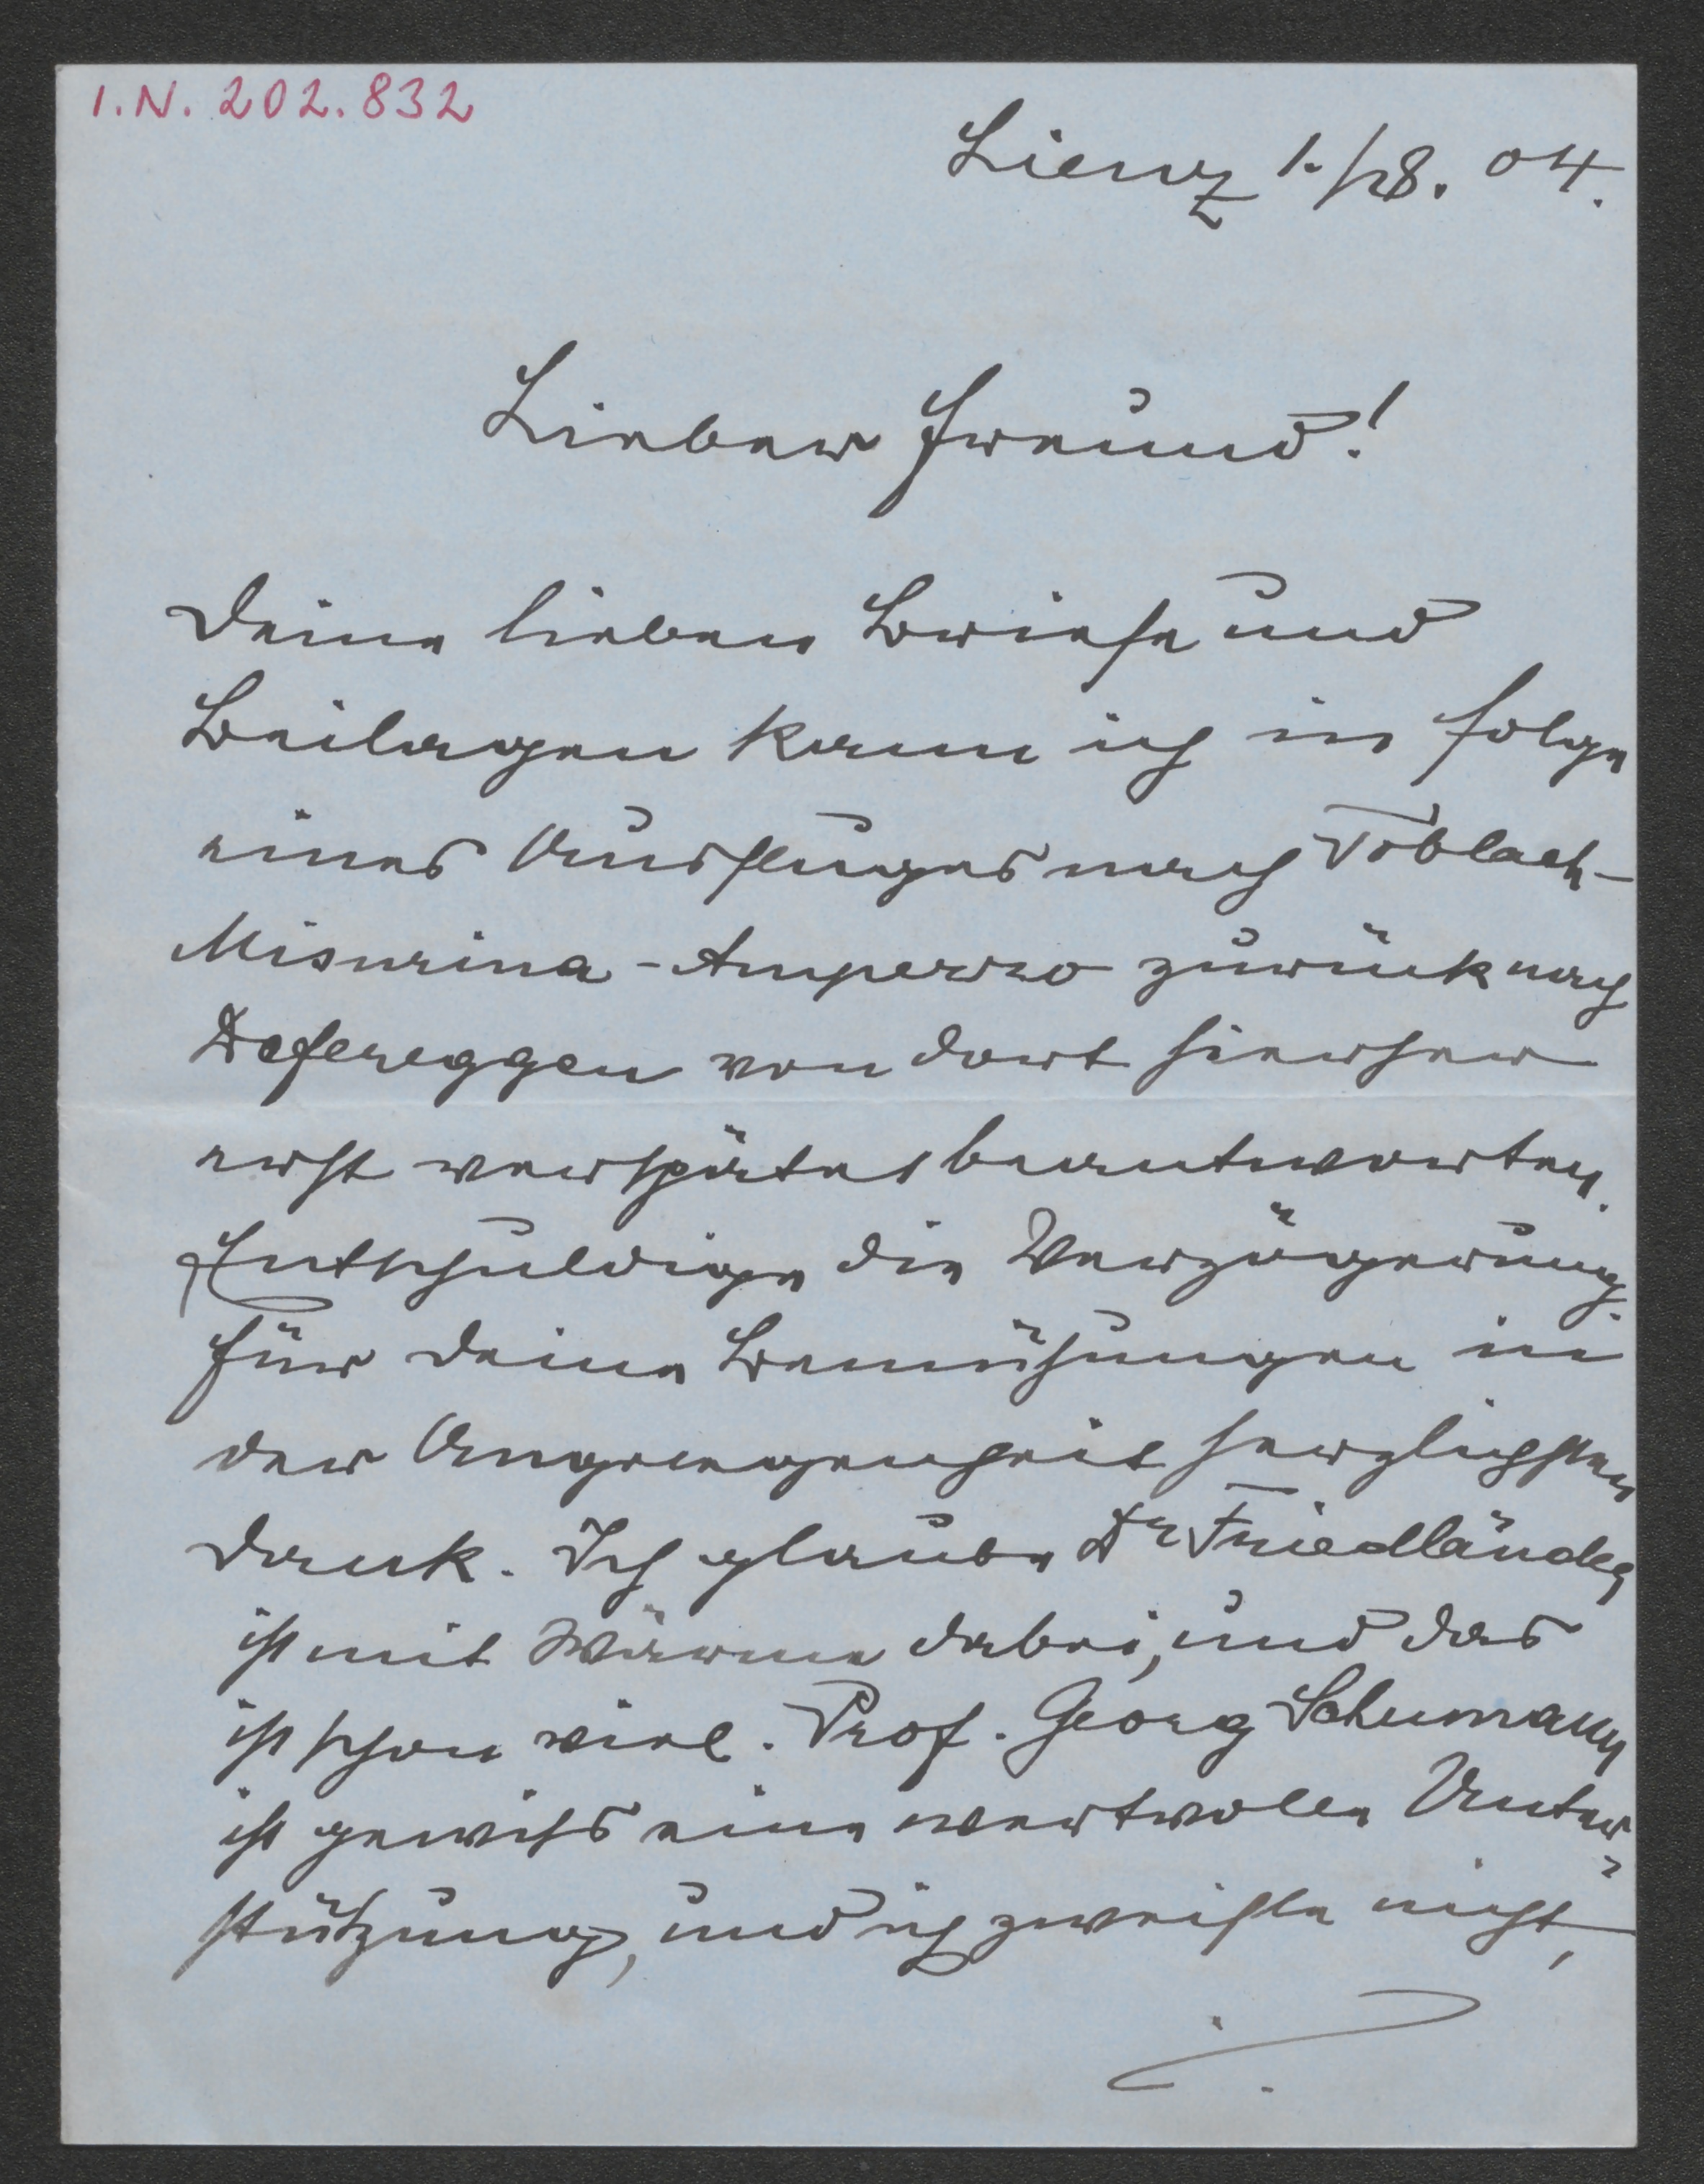 I.N. 202.832
Lienz 1./8. 04.
Lieber Freund!
Deine lieben Briefe und
Beilagen kann ich in Folge
eines Ausfluges nach Toblach-
Misurina-Ampezzo zurück nach
Defereggen von dort hierher
erst verspätet beantworten.
Entschuldige die Verzögerung.
Für Deine Bemühungen in
der Angelegenheit herzlichsten
Dank. Ich glaube Dr Friedländer
ist mit Wärme dabei, und das
ist schon viel. Prof. Georg Schumann
ist gewiss eine wertvolle Unter-
stützung, und ich zweifle nicht,